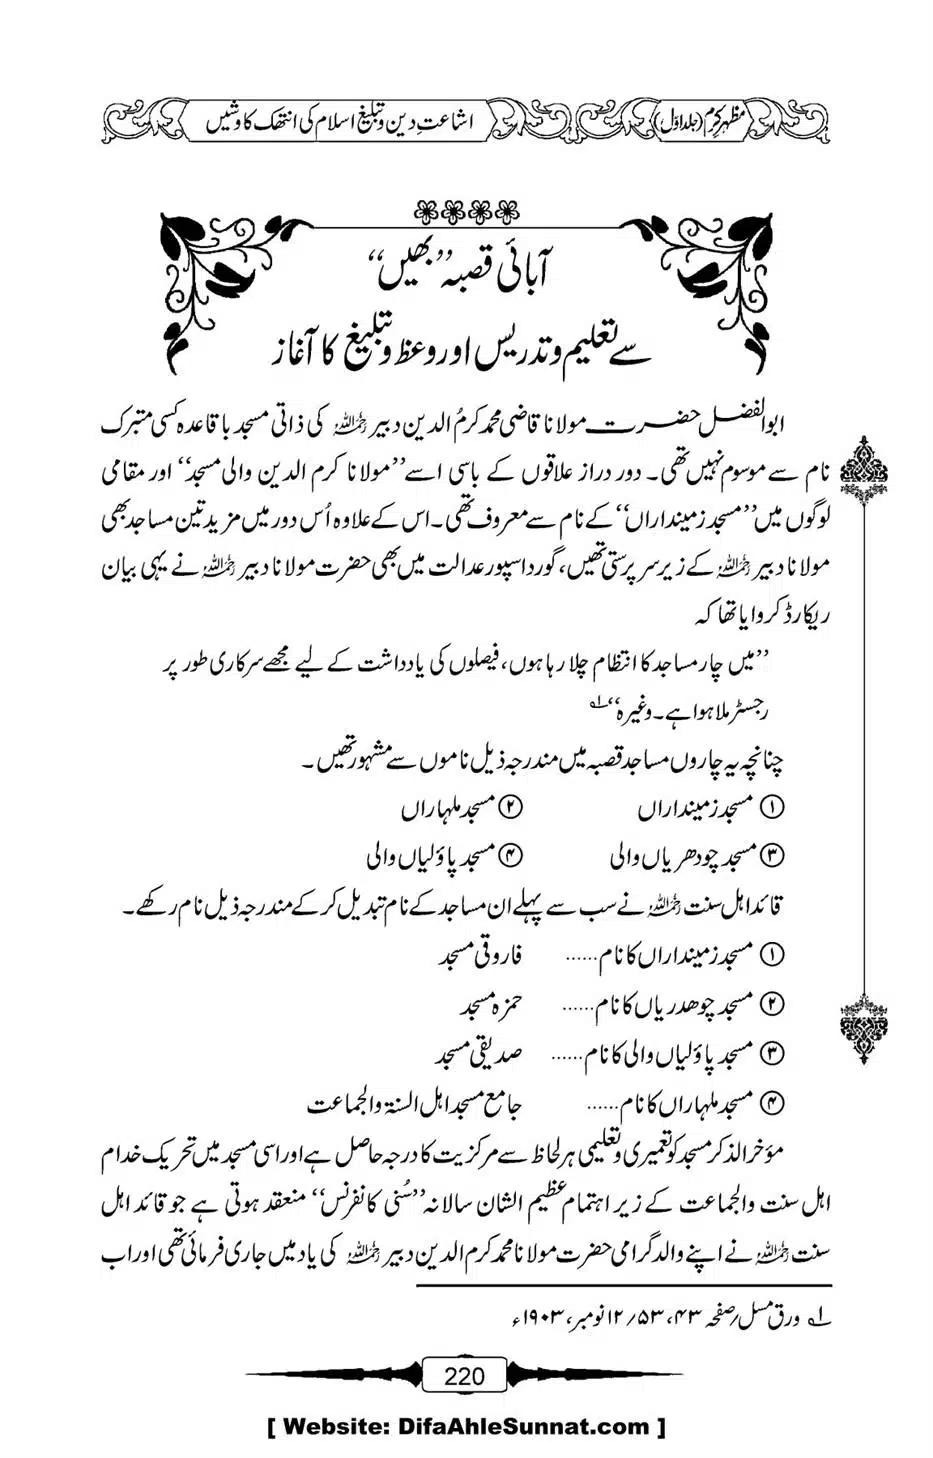 مظہرِ کرم (جلد اوّل) اشاعتِ دین و تبلیغ اسلام کی انتھک کاوشیں
آبائی قصبہ ’’بھیں‘‘
سے تعلیم و تدریس اور وعظ و تبلیغ کا آغاز
ابوالفضل حضرت مولانا قاضی محمد کرمُ الدین دبیر رحمہ اللہ کی ذاتی مسجد باقاعدہ کسی متبرک
نام سے موسوم نہیں تھی۔ دور دراز علاقوں کے باسی اسے ’’مولانا کرم الدین والی مسجد‘‘ اور مقامی
لوگوں میں ’’مسجد زمینداراں‘‘ کے نام سے معروف تھی۔ اس کے علاوہ اُس دور میں مزید تین مساجد بھی
مولانا دبیر رحمہ اللہ کے زیر سرپرستی تھیں، گورداسپور عدالت میں بھی حضرت مولانا دبیر رحمہ اللہ نے یہی بیان
ریکارڈ کروایا تھا کہ
’’میں چار مساجد کا انتظام چلا رہا ہوں، فیصلوں کی یادداشت کے لیے مجھے سرکاری طور پر
رجسٹر ملا ہوا ہے۔ وغیرہ‘‘ ۱؎
چنانچہ یہ چاروں مساجد قصبہ میں مندرجہ ذیل ناموں سے مشہور تھیں۔
① مسجد زمینداراں ② مسجد ملہاراں
③ مسجد چودھریاں والی ④ مسجد پاؤلیاں والی
قائد اہل سنت رحمہ اللہ نے سب سے پہلے ان مساجد کے نام تبدیل کر کے مندرجہ ذیل نام رکھے۔
① مسجد زمینداراں کا نام...... فاروقی مسجد
② مسجد چوھدریاں کا نام...... حمزہ مسجد
③ مسجد پاؤلیاں والی کا نام...... صدیقی مسجد
④ مسجد ملہاراں کا نام...... جامع مسجد اہل السنۃ والجماعت
مؤخر الذکر مسجد کو تعمیری و تعلیمی ہر لحاظ سے مرکزیت کا درجہ حاصل ہے اور اسی مسجد میں تحریک خدام
اہل سنت والجماعت کے زیر اہتمام عظیم الشان سالانہ ’’سُنی کانفرنس‘‘ منعقد ہوتی ہے جو قائد اہل
سنت رحمہ اللہ نے اپنے والد گرامی حضرت مولانا محمد کرم الدین دبیر رحمہ اللہ کی یاد میں جاری فرمائی تھی اور اب
۱؎ ورق مسل/صفحہ ۴۳، ۵۳/ ۱۲ نومبر، ۱۹۰۳ء
220
[ Website: DifaAhleSunnat.com ]